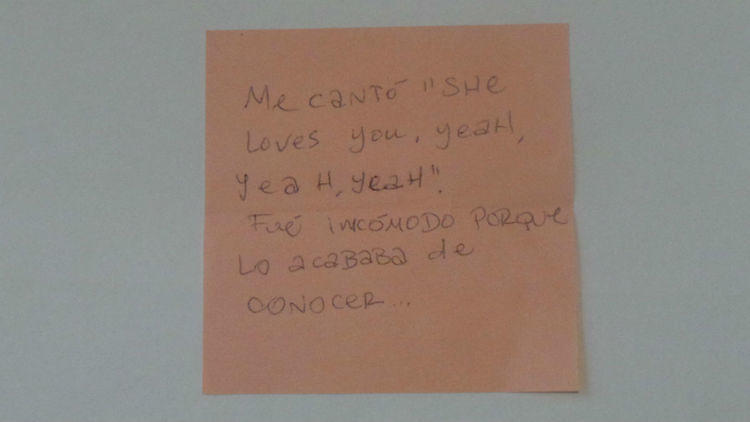 Me cantó "She
loves you, yeah,
yeah, yeah".
Fué incómodo porque
lo acababa de
conocer...